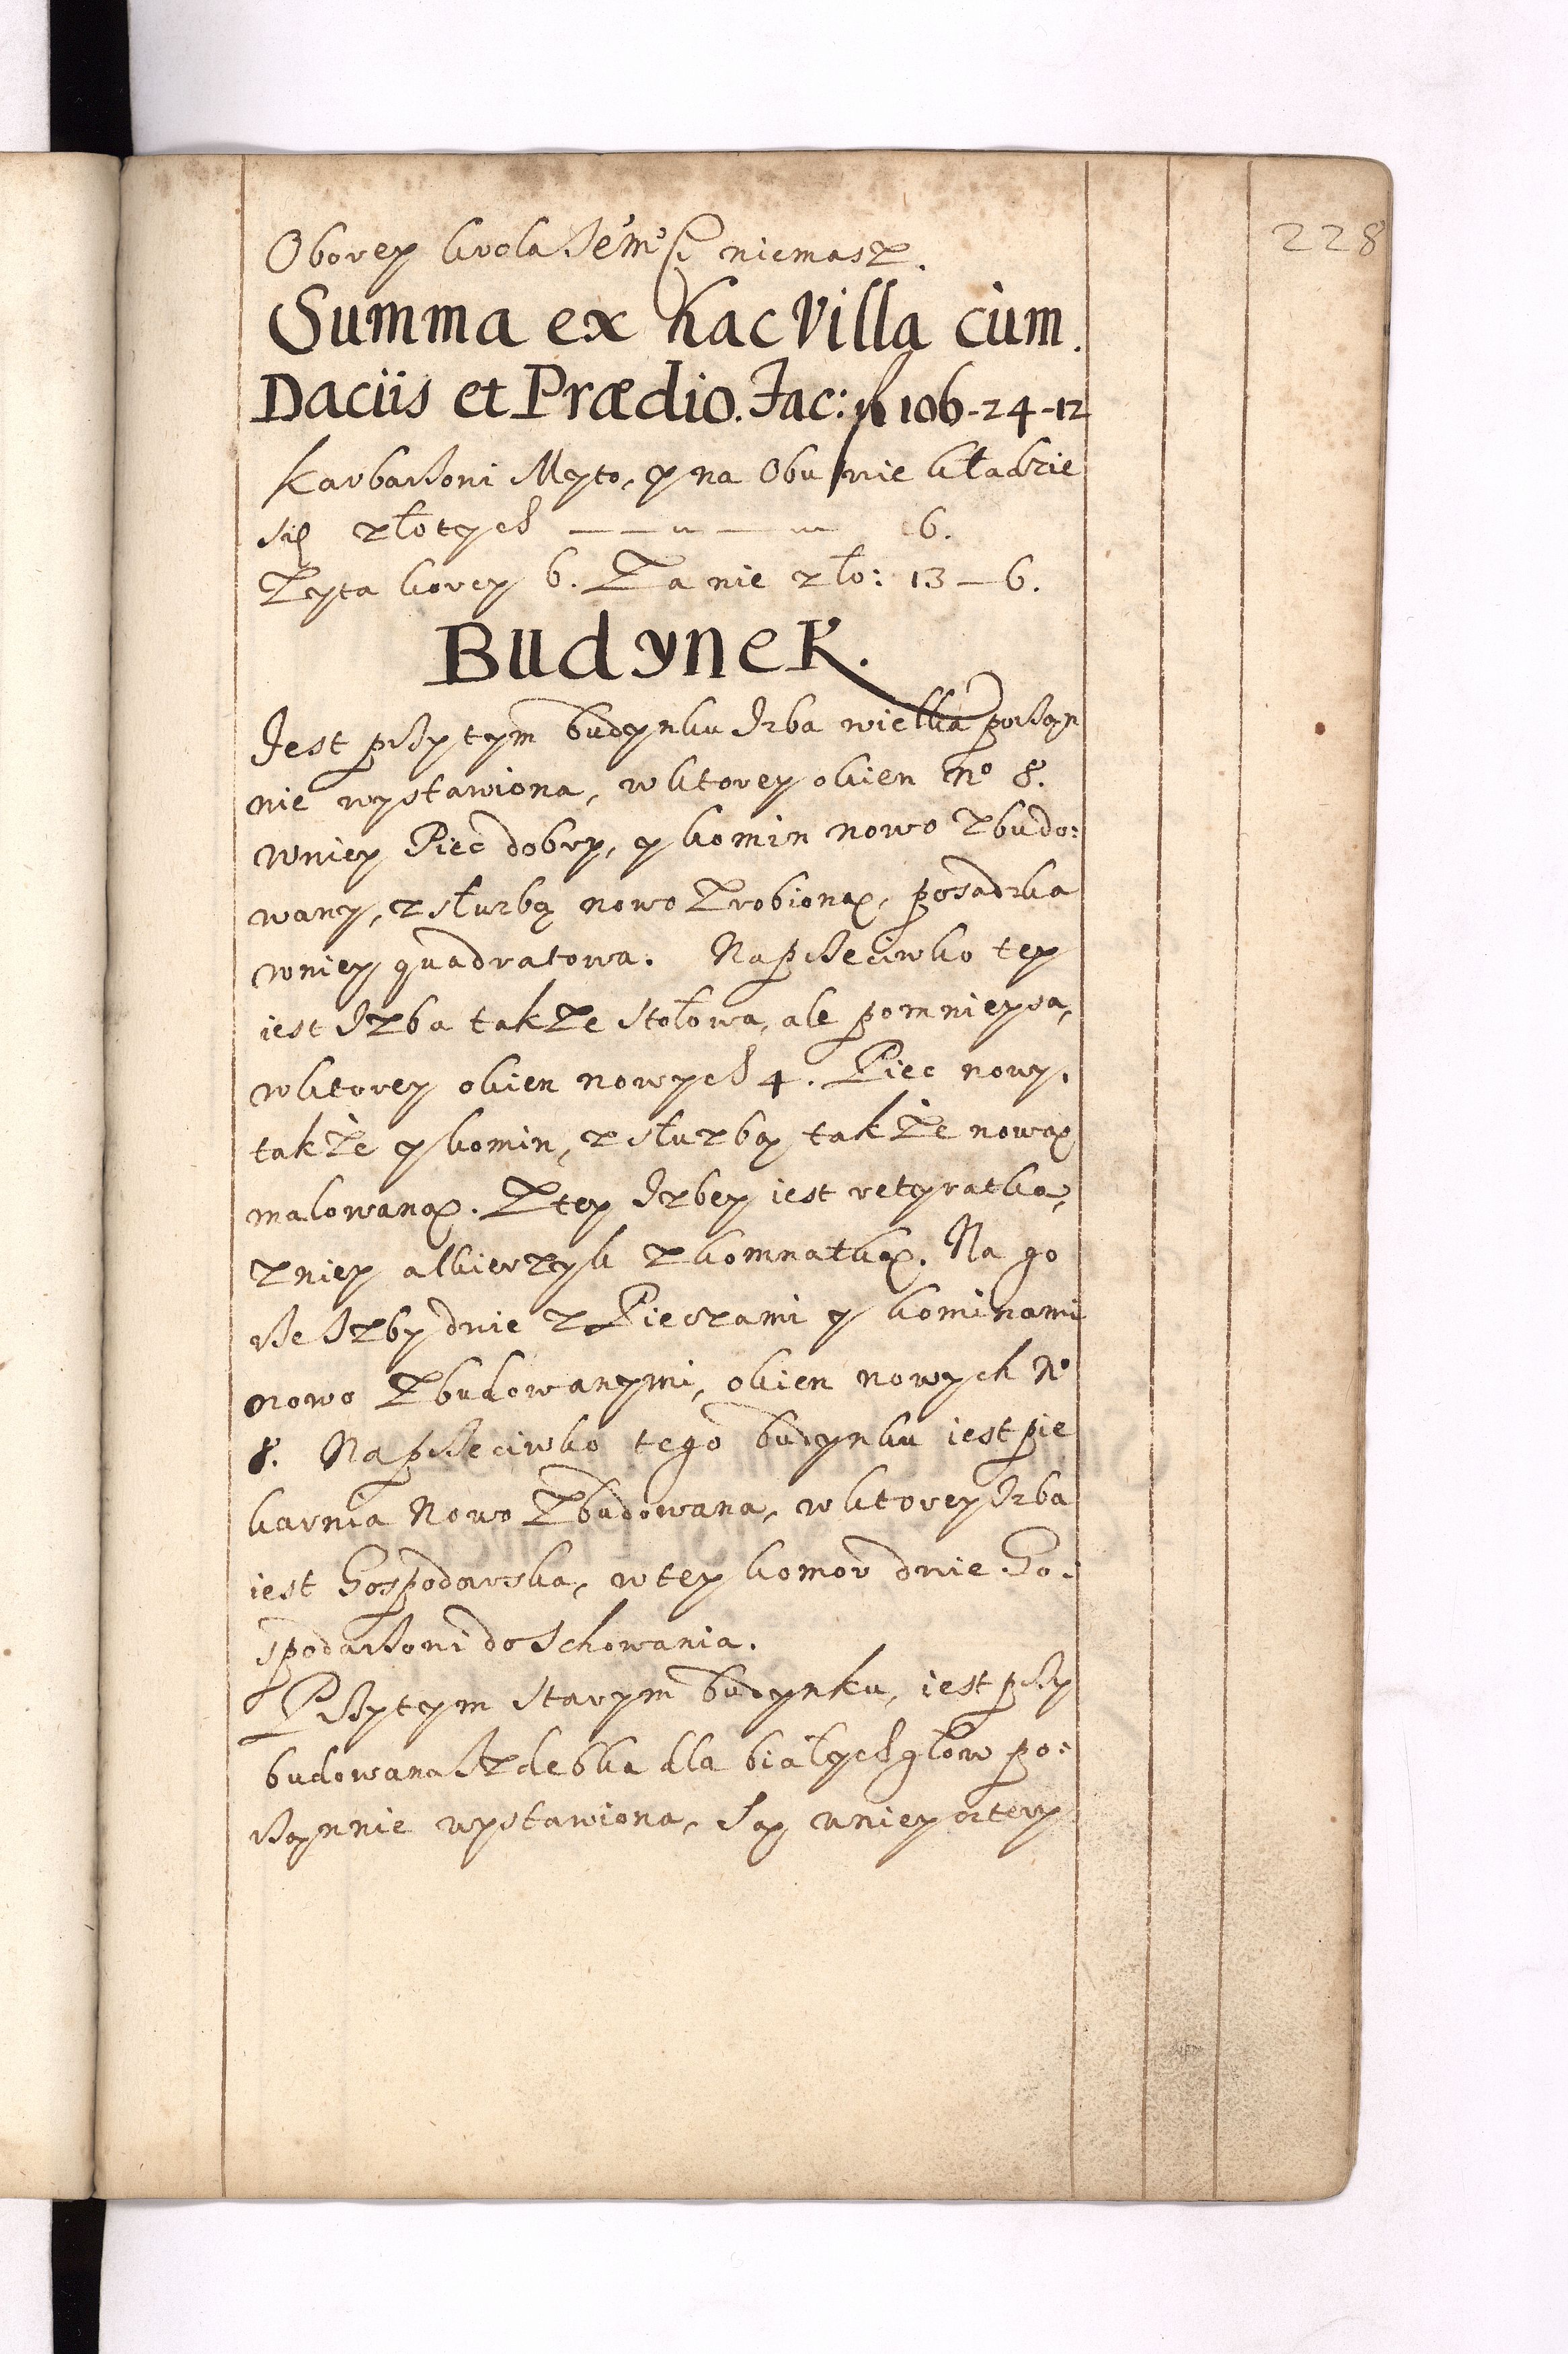 228
Oborey krola Je°m°ści niemasz.
Summa ex hac Villa cum
Daciis et Prædio. Fac: fl 106-24-12
Karbarzoni Myto, y na Obuwie kładzie
się złotych — — „ — „ 6.
Żyta korcy 6. Ta nie zło: 13 – 6.
Budynek.
Jest przytym budynku Izba wielka porząn
nie wystawiona, wktorey okien N° 8.
wniey Piec dobry, y komin nowo Zbudo:
wany, z słuzbą nowo Zrobioną, posadzka
wniey quadratowa. Naprzeciwko tey
iest Izba takZe stołowa, ale pomnieysa,
wktorey okien nowych 4. Piec nowy,
takŻe y komin, z słuzbą takŻe nową
malowaną. Ztey Izbey iest retyratka,
zniey alkierzyk z komnatką. Na go
rze Izby dwie z Pieczami y kominami
nowo Zbudowanymi, okien nowych N°
8. Naprzeciwko tego budynku iest pie
karnia Nowo Zbudowana, wktorey Izba
iest Gospodarska, wtey komor dwie Go:
spodarzoni do Schowania.
Przytym starym budynku, iest przy
budowana Izdebka dla białychgłow po:
rząnnie wystawiona, Są wniey cztery